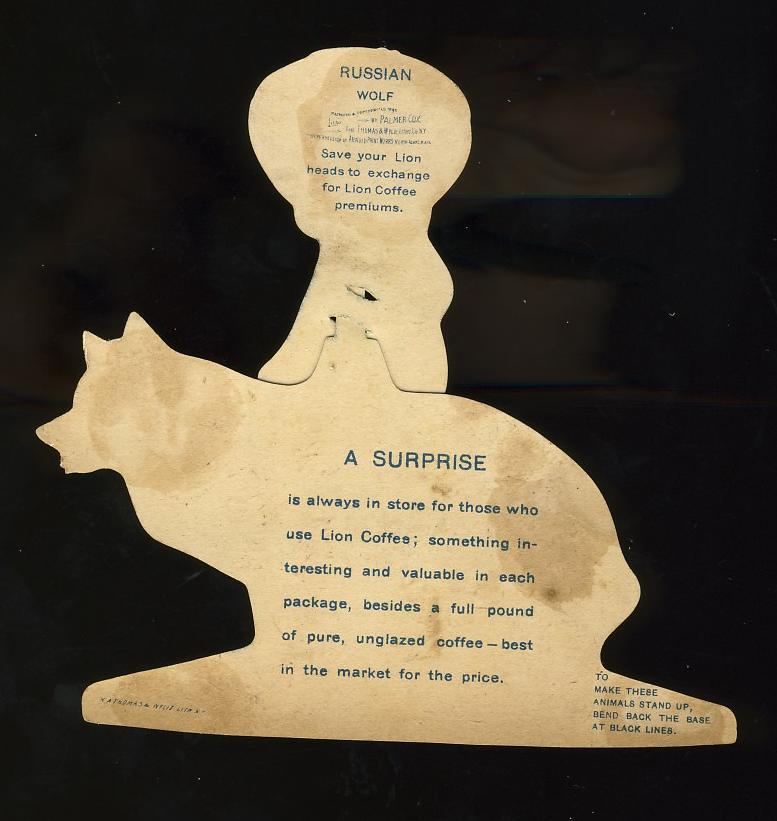 RUSSIAN
WOLF
BY PALMER COX
THE THOMAS & WYLIE LITHO. CO. N.Y.
ARNOLD PRINT WORKS
Save your Lion
heads to exchange
for Lion Coffee
premiums.
A SURPRISE
is always in store for those who
use Lion Coffee; something in-
teresting and valuable in each
package, besides a full pound
of pure, unglazed coffee—best
in the market for the price.
TO
MAKE THESE
ANIMALS STAND UP,
BEND BACK THE BASE
AT BLACK LINES.
THOMAS & WYLIE LITH